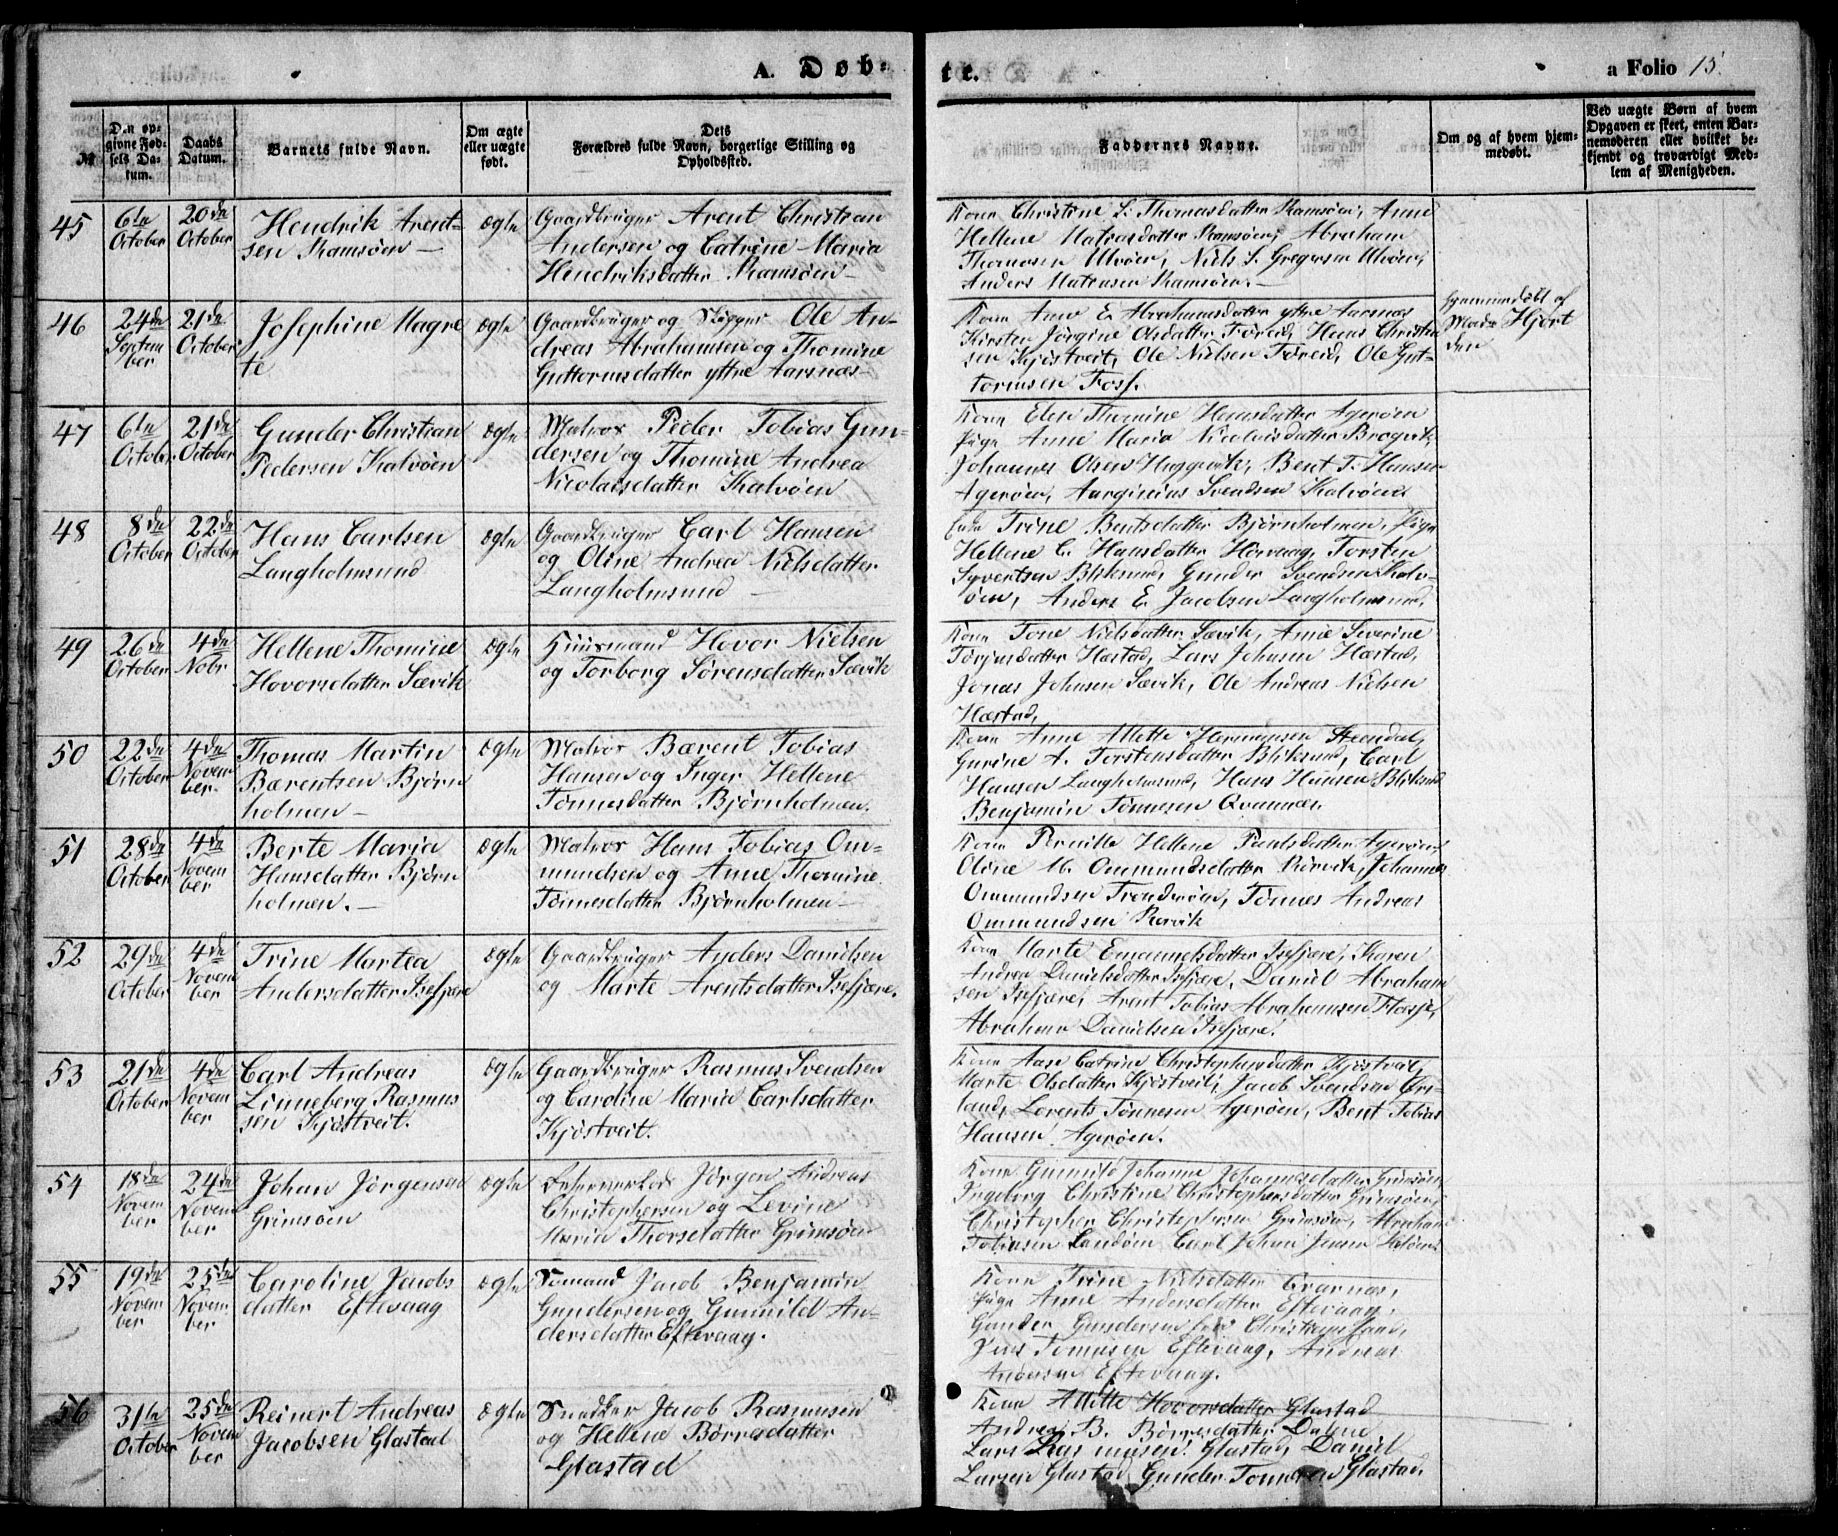 A. Døb-
te.
a Folio 15.
№
Den op-
givne Fød-
sels Da-
tum.
Daabs
Datum.
Barnets fulde Navn.
Om ægte
eller uægte
født.
Dets
Forældres fulde Navn, borgerlige Stilling og
Opholdssted.
Faddernes Navne.
Om og af hvem hjem-
medøbt.
Ved uægte Børn af hvem
Opgaven er skeet, enten Bar-
nemoderen eller hvilket be-
kjendt og troværdigt Med-
lem af Menigheden.
45
6te
October
20de
October
Hendrik Arent-
sen Ramsøen
ægte
Gaardbruger Arent Christian
Andersen og Catrine Maria
Hendriksdatter Ramsøen
Kone Christine S. Thomasdatter Ramsøen, Anne
Hellene Matiasdatter Ramsøen, Abraham
Thomasen Ulvøen, Niels S. Gregersen Ulvøen,
Anders Matiasen Ramsøen.
46
24de
Septem
ber
21de
October
Josephine Magre
te
ægte
Gaardbruger og Skipper Ole An-
dreas Abrahamsen og Thomine
Guttormsdatter yttre Aarsnæs
Kone Anne E. Abrahamsdatter yttre Aarsnæs
Kirsten Jørgine Olsdatter Føreid, Hans Christian
sen Kjøstveit, Ole Nielsen Føreid, Ole Gut-
tormsen Foss.
Hjemmedøbt af
Mads Hjort
den
47
6te
October
21de
October
Gunder Christian
Pedersen Kalvøen
ægte
Matros Peder Tobias Gun-
dersen og Thomine Andrea
Nicolaisdatter Kalvøen
Kone Elen Thomine Hansdatter Agerøen
Pige Anne Maria Nicolaisdatter Brogvik
Johannes Olsen, Bent T. Hansen
Agerøen, Svendsen Kalvøen
48
8de
October
22de
October
Hans Carlsen
Langholmsund
ægte
Gaardbruger Carl Hansen
og Oline Andrea Nielsdatter
Langholmsund
Trine Bentsdatter Bjørnholmen, Pige
Hellene C. Hansdatter Hørvaag, Torsten
Syvertsen Bliksund, Gunder Svendsen Kalv-
øen, Anders E. Jacobsen Langholmsund,
49
26de
October
4de
Nobr
Hellene Thomine
Hovorsdatter Sævik
ægte
Huusmand Hovor Nielsen
og Torborg Sørensdatter Sævik
Kone Tone Nielsdatter Sævik, Anne Severine
Torjusdatter Hæstad, Lars Johnsen Hæstad,
Jonas Johnsen Sævik, Ole Andreas Nielsen
Hæstad,
50
22de
October
4de
Novem
ber
Thomas Martin
Bærentsen Bjørn
holmen
ægte
Matros Bærent Tobias
Hansen og Inger Hellene
Tønnesdatter Bjørnholmen.
Kone Anne Mette Hermansen Steendal,
Gurine A. Torstensdatter Bliksund, Carl
Hansen Langholmsund, Hans Hansen Bliksund
Benjamin Tønnesen Qvannæs.
51
28de
October
4de
Novem
ber
Berte Maria
Hansdatter Bjørn
holmen.
ægte
Matros Hans Tobias Om-
mundsen og Anne Thomine
Tønnesdatter Bjørnholmen
Kone Pernille Hellene Bentsdatter Agerøen
Oline M. Ommundsdatter Rørvik, Johannes
Ommundsen, Tønnes Andreas
Ommundsen Rørvik
52
29de
October
4de
Novem
ber
Trine Martea
Andersdatter Isefjære
ægte
Gaardbruger Anders Danielsen
og Marte Arentsdatter Isefjære.
Kone Marte Emanuelsdatter Isefjære, Karen
Andrea Danielsdatter Isefjære, Daniel Abraham
sen Isefjære, Arent Tobias Abrahamsen
Abraham Danielsen Isefjære.
53
21de
October
4de
Novem
ber
Carl Andreas
Linneberg Rasmus
sen Kjøstveit.
ægte
Gaardbruger Rasmus Svendsen
og Caroline Maria Carlsdatter
Kjøstveit.
Kone Aase Catrine Christophersdatter Kjøstveit,
Marte Olsdatter Kjøstveit, Jacob Svendsen
Lorents Tønnesen Agerøen, Bent Tobias
Hansen Agerøen.
54
18de
Novem
ber
24de
Novem
ber
Johan Jørgensen
Grimsøen
ægte
Jørgen Andreas
Christophersen og Levine
Maria Thorsdatter Grimsøen
Kone Gunnild Johanne Johannesdatter Grimsøen
Ingeborg Christine Christophersdatter Grimsøen,
Christopher Christophersen Grimsøen, Abraham
Tobiasen Sandøen, Carl Johan
55
19de
Novem
ber
25de
Novem-
ber
Caroline Jacobs
datter Eftevaag
ægte
Sømand Jacob Benjamin
Gundersen og Gunnild An-
dersdatter Eftevaag.
Kone Trine Nielsdatter
Pige Anne Andersdatter Eftevaag,
Gunder Gundersen Christiansand,
Jens Tomasen Eftevaag, Andreas
Andersen Eftevaag.
56
31te
October
25de
Novem
ber
Reinert Andreas
Jacobsen Glastad
ægte
Snedker Jacob Rasmusen
og Hellene Børresdatter
Glastad
Kone Mette Hovorsdatter Glastad
Andrea B. Børresdatter Dalene
Lars Rasmusen Glastad, Daniel
Larsen Glastad, Gunder Tønnesen Glastad.